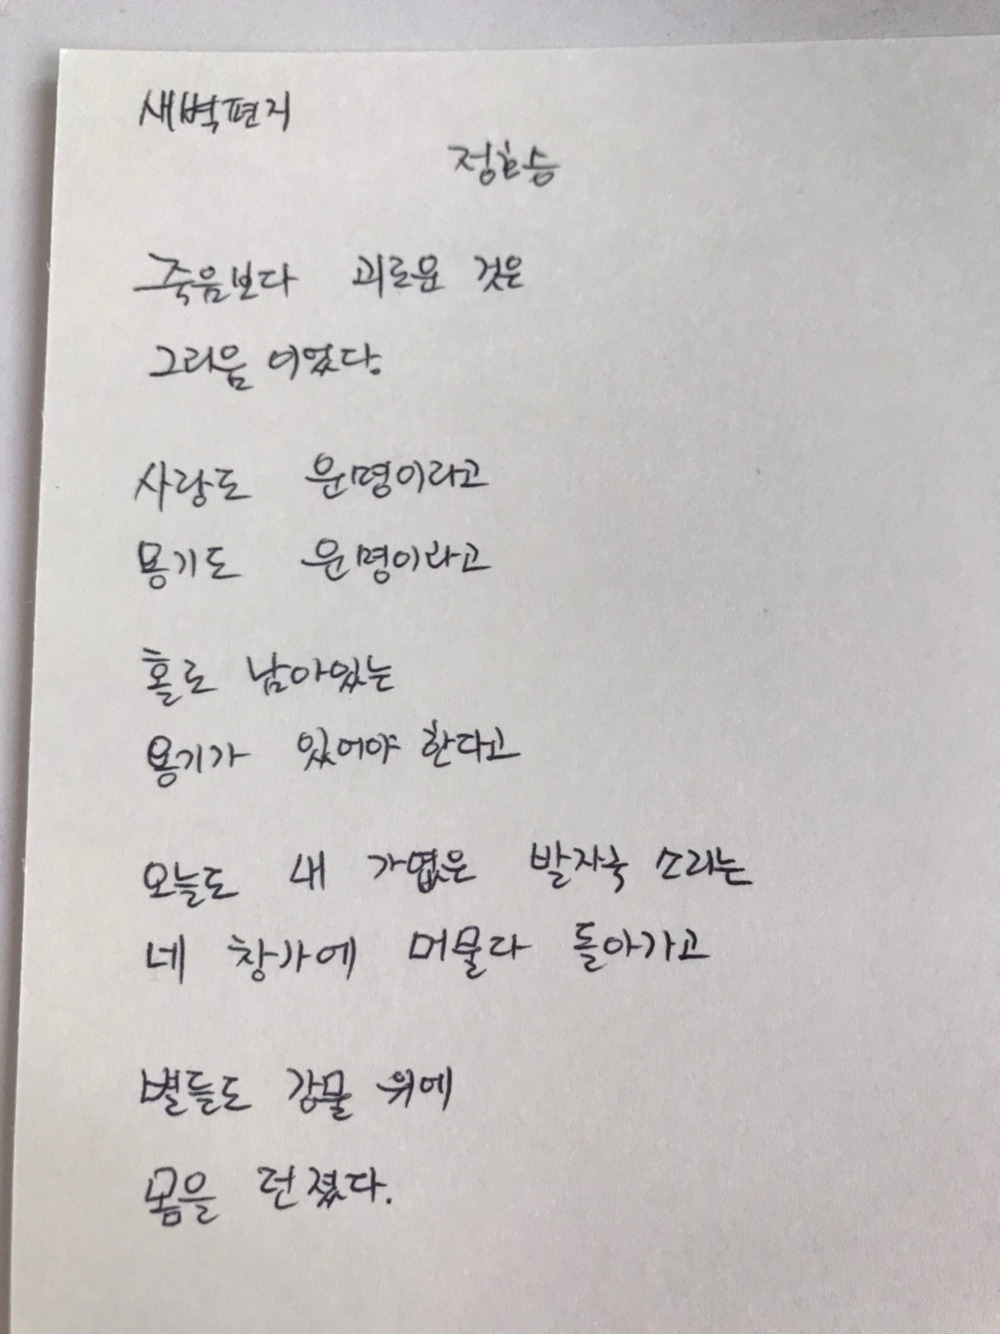 새벽편지
정호승
죽음보다 괴로운 것은
그리움 이었다.
사랑도 운명이라고
용기도 운명이라고
홀로 남아있는
용기가 있어야 한다고
오늘도 내 가엾은 발자국 소리는
네 창가에 머물다 돌아가고
별들도 강물 위에
몸을 던졌다.